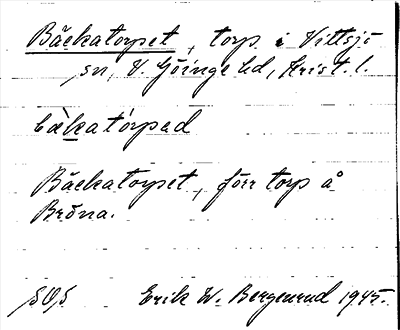 Bäckatorpet, torp i Vittsjö
sn, V. Göinge hd, Krist. l.
bæ̀katórpad
Bäckatorpet, förr torp å
Bröna.
SOS Erik W. Bergenrud 1945.